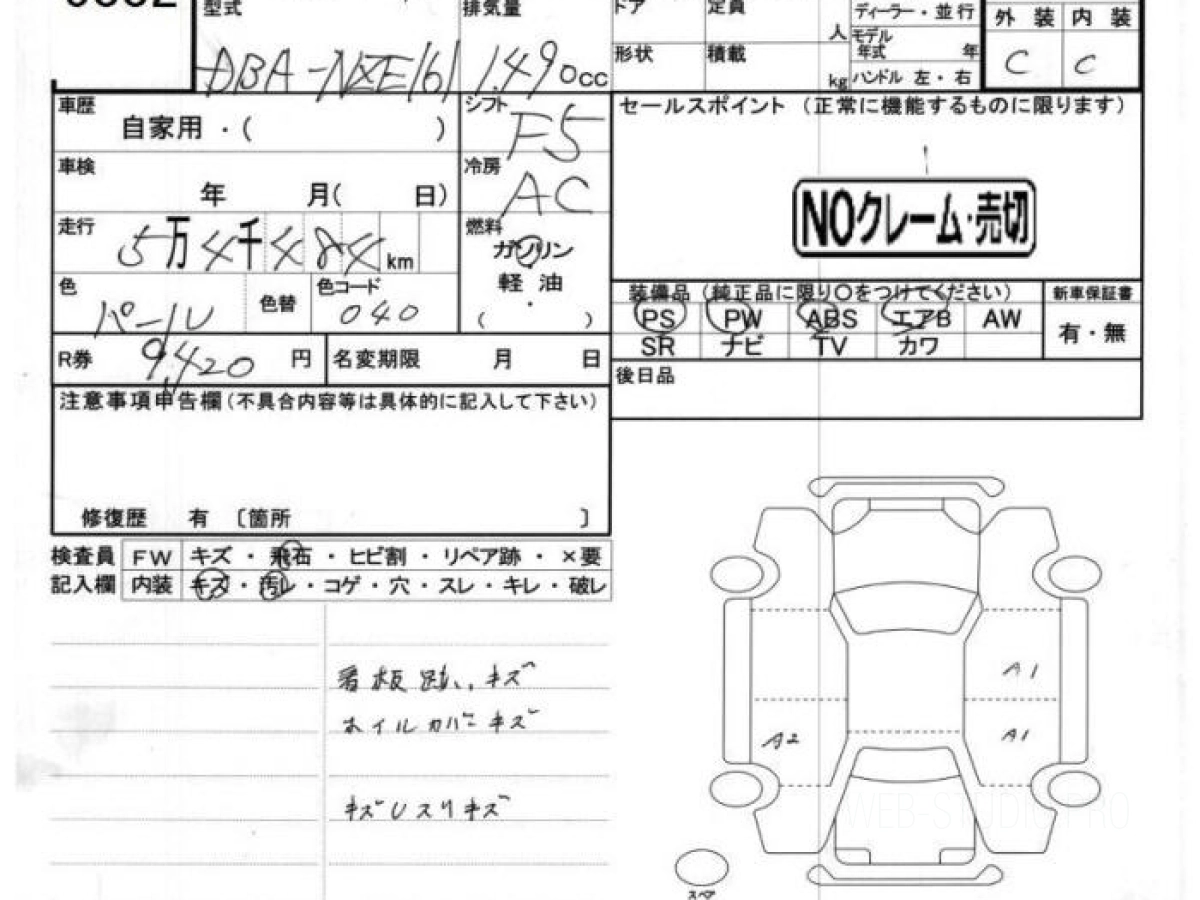 型式 排気量 ドア 定員 人 ディーラー・並行 外装 内装
DBA-NZE161 1.490cc 形状 積載 kg モデル年式 年 C C
ハンドル 左・右
車歴 自家用・( ) シフト F5 セールスポイント (正常に機能するものに限ります)
車検 年 月( 日) 冷房 AC
NOクレーム・売切
走行 5万4千484km 燃料 ガソリン
軽油
・
( )
色 パール 色替 色コード 040
装備品 (純正品に限り○をつけてください) 新車保証書
PS PW ABS エアB AW 有・無
SR ナビ TV カワ
R券 9,420円 名変期限 月 日
後日品
注意事項申告欄(不具合内容等は具体的に記入して下さい)
修復歴 有 〔箇所 〕
検査員 FW キズ・飛石・ヒビ割・リペア跡・×要
記入欄 内装 キズ・汚レ・コゲ・穴・スレ・キレ・破レ
看板跡、キズ
A1
ホイルカバーキズ
A2 A1
キズUスリキズ
WEB-STUDIO.PRO
スペア